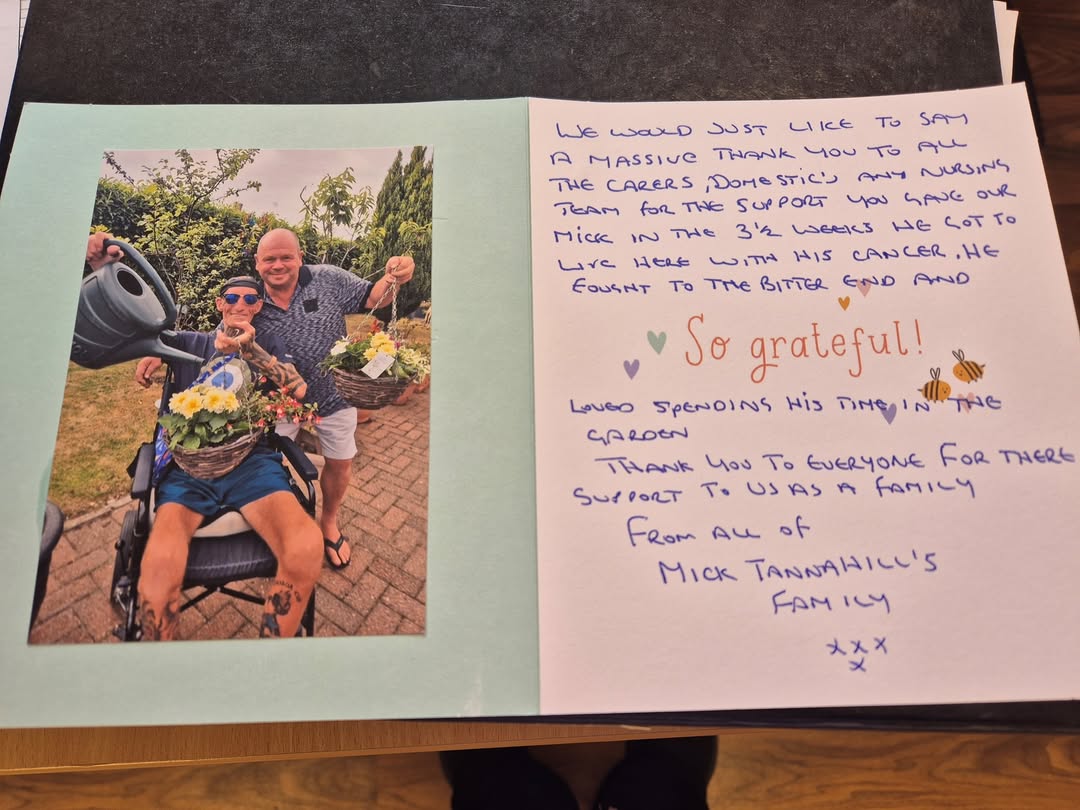 WE WOULD JUST LIKE TO SAY
A MASSIVE THANK YOU TO ALL
THE CARERS, DOMESTIC'S ANY NURSING
TEAM FOR THE SUPPORT YOU GAVE OUR
MICK IN THE 3½ WEEKS HE GOT TO
LIVE HERE WITH HIS CANCER. HE
FOUGHT TO THE BITTER END AND
So grateful!
LOVED SPENDING HIS TIME IN THE
GARDEN
THANK YOU TO EVERYONE FOR THERE
SUPPORT TO US AS A FAMILY
FROM ALL OF
MICK TANNAHILL'S
FAMILY
xxx
x